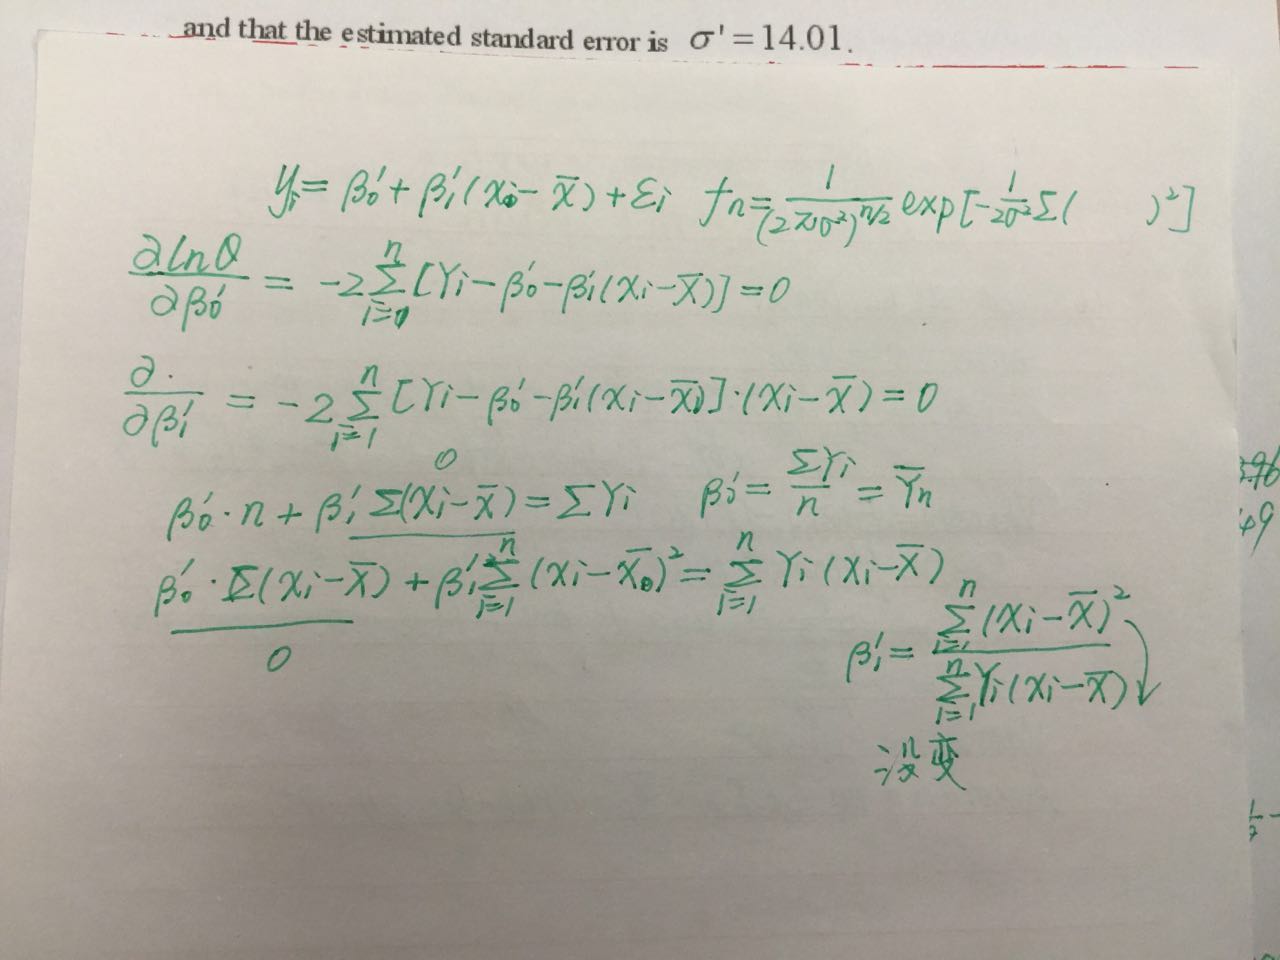 and that the estimated standard error is σ' = 14.01.
yᵢ = β₀' + β₁'(xᵢ - x̄) + εᵢ   fn = 1/(2πσ²)^(n/2) exp[-1/(2σ²) Σ(      )²]
∂lnθ/∂β₀' = -2 Σ(i=0 to n) [Yᵢ - β₀' - β₁'(xᵢ - x̄)] = 0
∂·/∂β₁' = -2 Σ(i=1 to n) [Yᵢ - β₀' - β₁'(xᵢ - x̄)]·(xᵢ - x̄) = 0
0
β₀'·n + β₁' Σ(xᵢ - x̄) = ΣYᵢ   β₀' = ΣYᵢ/n = Ȳn
β₀'·Σ(xᵢ - x̄) + β₁' Σ(i=1 to n) (xᵢ - x̄)² = Σ(i=1 to n) Yᵢ(xᵢ - x̄)
0
β₁' = Σ(i=1 to n) (xᵢ - x̄)² / Σ(i=1 to n) Yᵢ(xᵢ - x̄)
没变